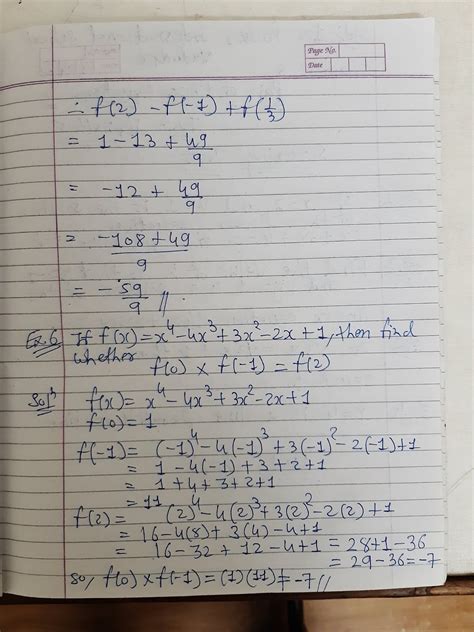 Page No.
Date
∴ f(2) - f(-1) + f(1/3)
= 1 - 13 + 49/9
= -12 + 49/9
= (-108 + 49)/9
= -59/9 //
Ex.6. If f(x) = x⁴ - 4x³ + 3x² - 2x + 1, then find
whether f(0) × f(-1) = f(2)
Solⁿ f(x) = x⁴ - 4x³ + 3x² - 2x + 1
f(0) = 1
f(-1) = (-1)⁴ - 4(-1)³ + 3(-1)² - 2(-1) + 1
= 1 - 4(-1) + 3 + 2 + 1
= 1 + 4 + 3 + 2 + 1
= 11
f(2) = (2)⁴ - 4(2)³ + 3(2)² - 2(2) + 1
= 16 - 4(8) + 3(4) - 4 + 1
= 16 - 32 + 12 - 4 + 1 = 28 + 1 - 36
= 29 - 36 = -7
So, f(0) × f(-1) = (1)(11) ≠ -7 //